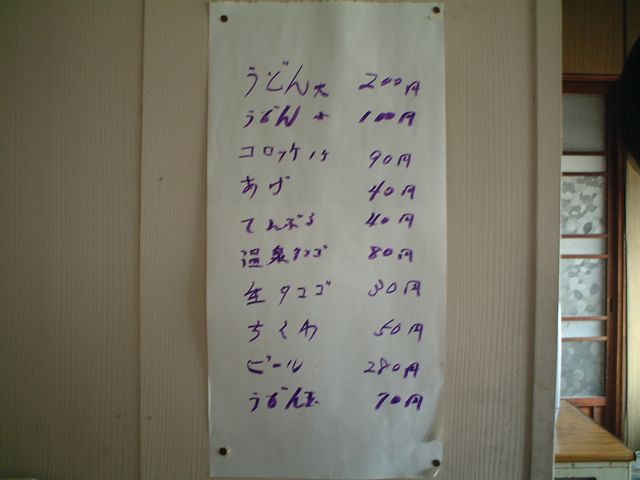 うどん大 200円
うどん小 100円
コロッケ1ヶ 90円
あげ 40円
てんぷら 40円
温泉タマゴ 80円
生タマゴ 30円
ちくわ 50円
ビール 280円
うどん玉 70円